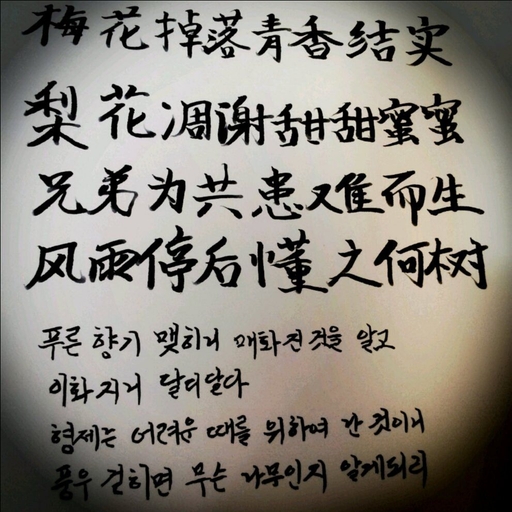 梅花掉落青香结实
梨花凋谢甜甜蜜蜜
兄弟为共患难而生
风雨停后懂之何树
푸른 향기 맺히니 매화진 것을 알고
이화지니 달디달다
형제는 어려운 때를 위하여 난 것이니
풍우 걷히면 무슨 나무인지 알게되리